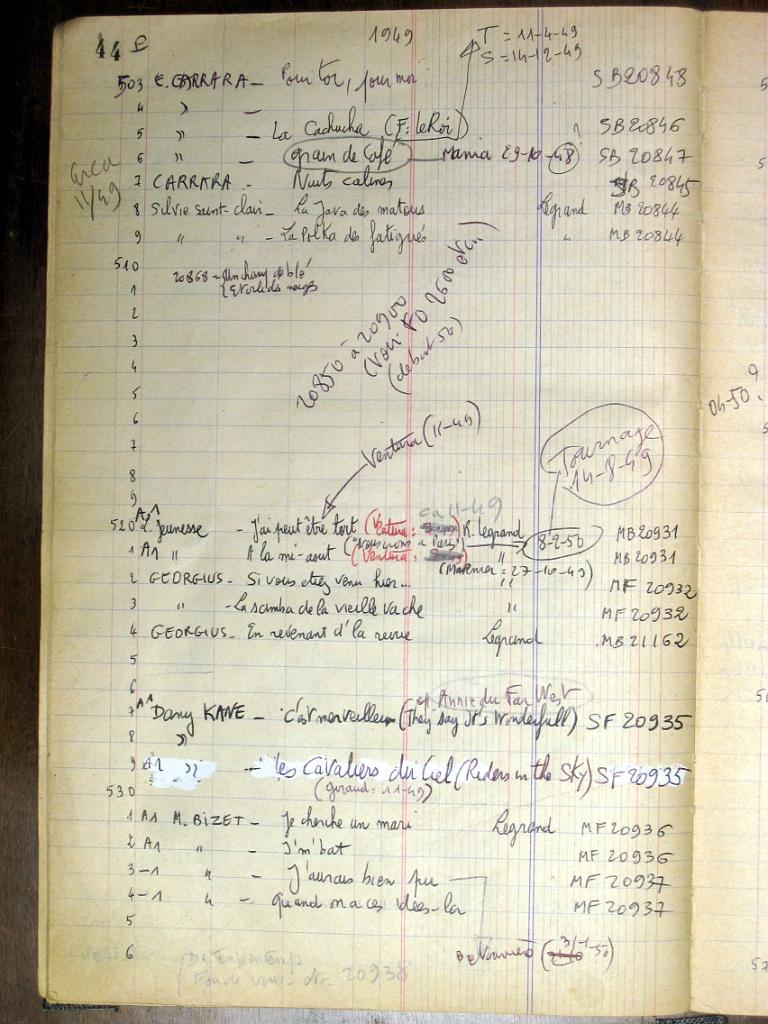 44
1949
T = 11-4-49
S = 14-12-49
503 E. CARRARA - Pour toi, pour moi SB20848
4 " -
5 " - La Cachucha (F: leRoi) SB 20846
6 " grain de Café Mania 29-10-48 SB 20847
7 CARRARA - Nuits calines SB 20845
circa 11/49
8 Silvie saint-clair - La Java des mateurs Legrand MB 20844
9 " " - La Polka des fatigués " MB 20844
510
1 20868 - Un champ de blé
{ Etoile des neiges
2
3
20850 à 20900
(voir FO 2600 etc..
(début 50)
4
5
04-50.
6
7
Ventura (11-49)
Tournage 14-8-49
8
9
ca 11-49
520 Jeunesse - J'ai peut être tort (Ventura: R. Legrand 8-2-50 MB20931
1 A1 " A la mi-aout ("Nous irons à Paris" (Ventura: " MB 20931
2 GEORGIUS - Si vous etiez venu hier... (Marnier: 27-10-49) " MF 20932
3 " - La samba de la vieille vache " MF 20932
4 GEORGIUS - En revenant d'la revue Legrand MB 21162
5
6
of Annie du Far West
7 A1 Dany KANE - c'est merveilleux (They say It's Wonderfull) SF 20935
8 "
9 A1 " - Les Cavaliers du Ciel (Riders in the Sky) SF 20935
530 (Giraud: 11-49)
1 A1 M. BIZET - Je cherche un mari Legrand MF 20936
2 A1 " - J'm'bat MF 20936
3 -1 " - J'aurais bien pu MF 20937
4 -1 " - Quand on a ces idées-la MF 20937
5
6 (3/-1-50)
20938